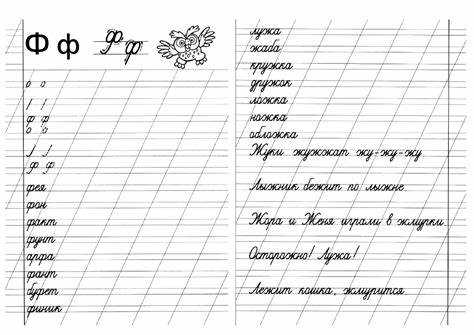 Ф ф Ф ф
о о
ф ф
о о
ф ф
фея
фон
факт
фунт
арфа
фант
буфет
финик
лужа
жаба
кружка
дружок
ложка
ножка
обложка
Жуки жужжат жу-жу-жу
Лыжник бежит по лыжне.
Жора и Женя играли в жмурки.
Осторожно! Лужа!
Лежит кошка, жмурится.